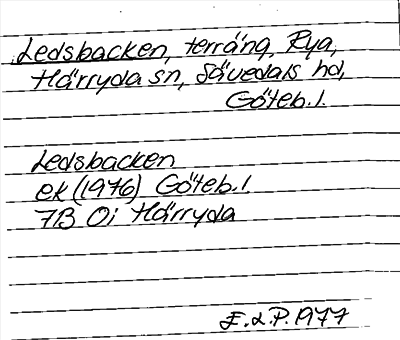 Ledsbacken, terräng, Rya,
Härryda sn, Sävedals hd,
Göteb.l.
Ledsbacken
ek (1976) Göteb.l.
7B 0i Härryda
E.L.P. 1977